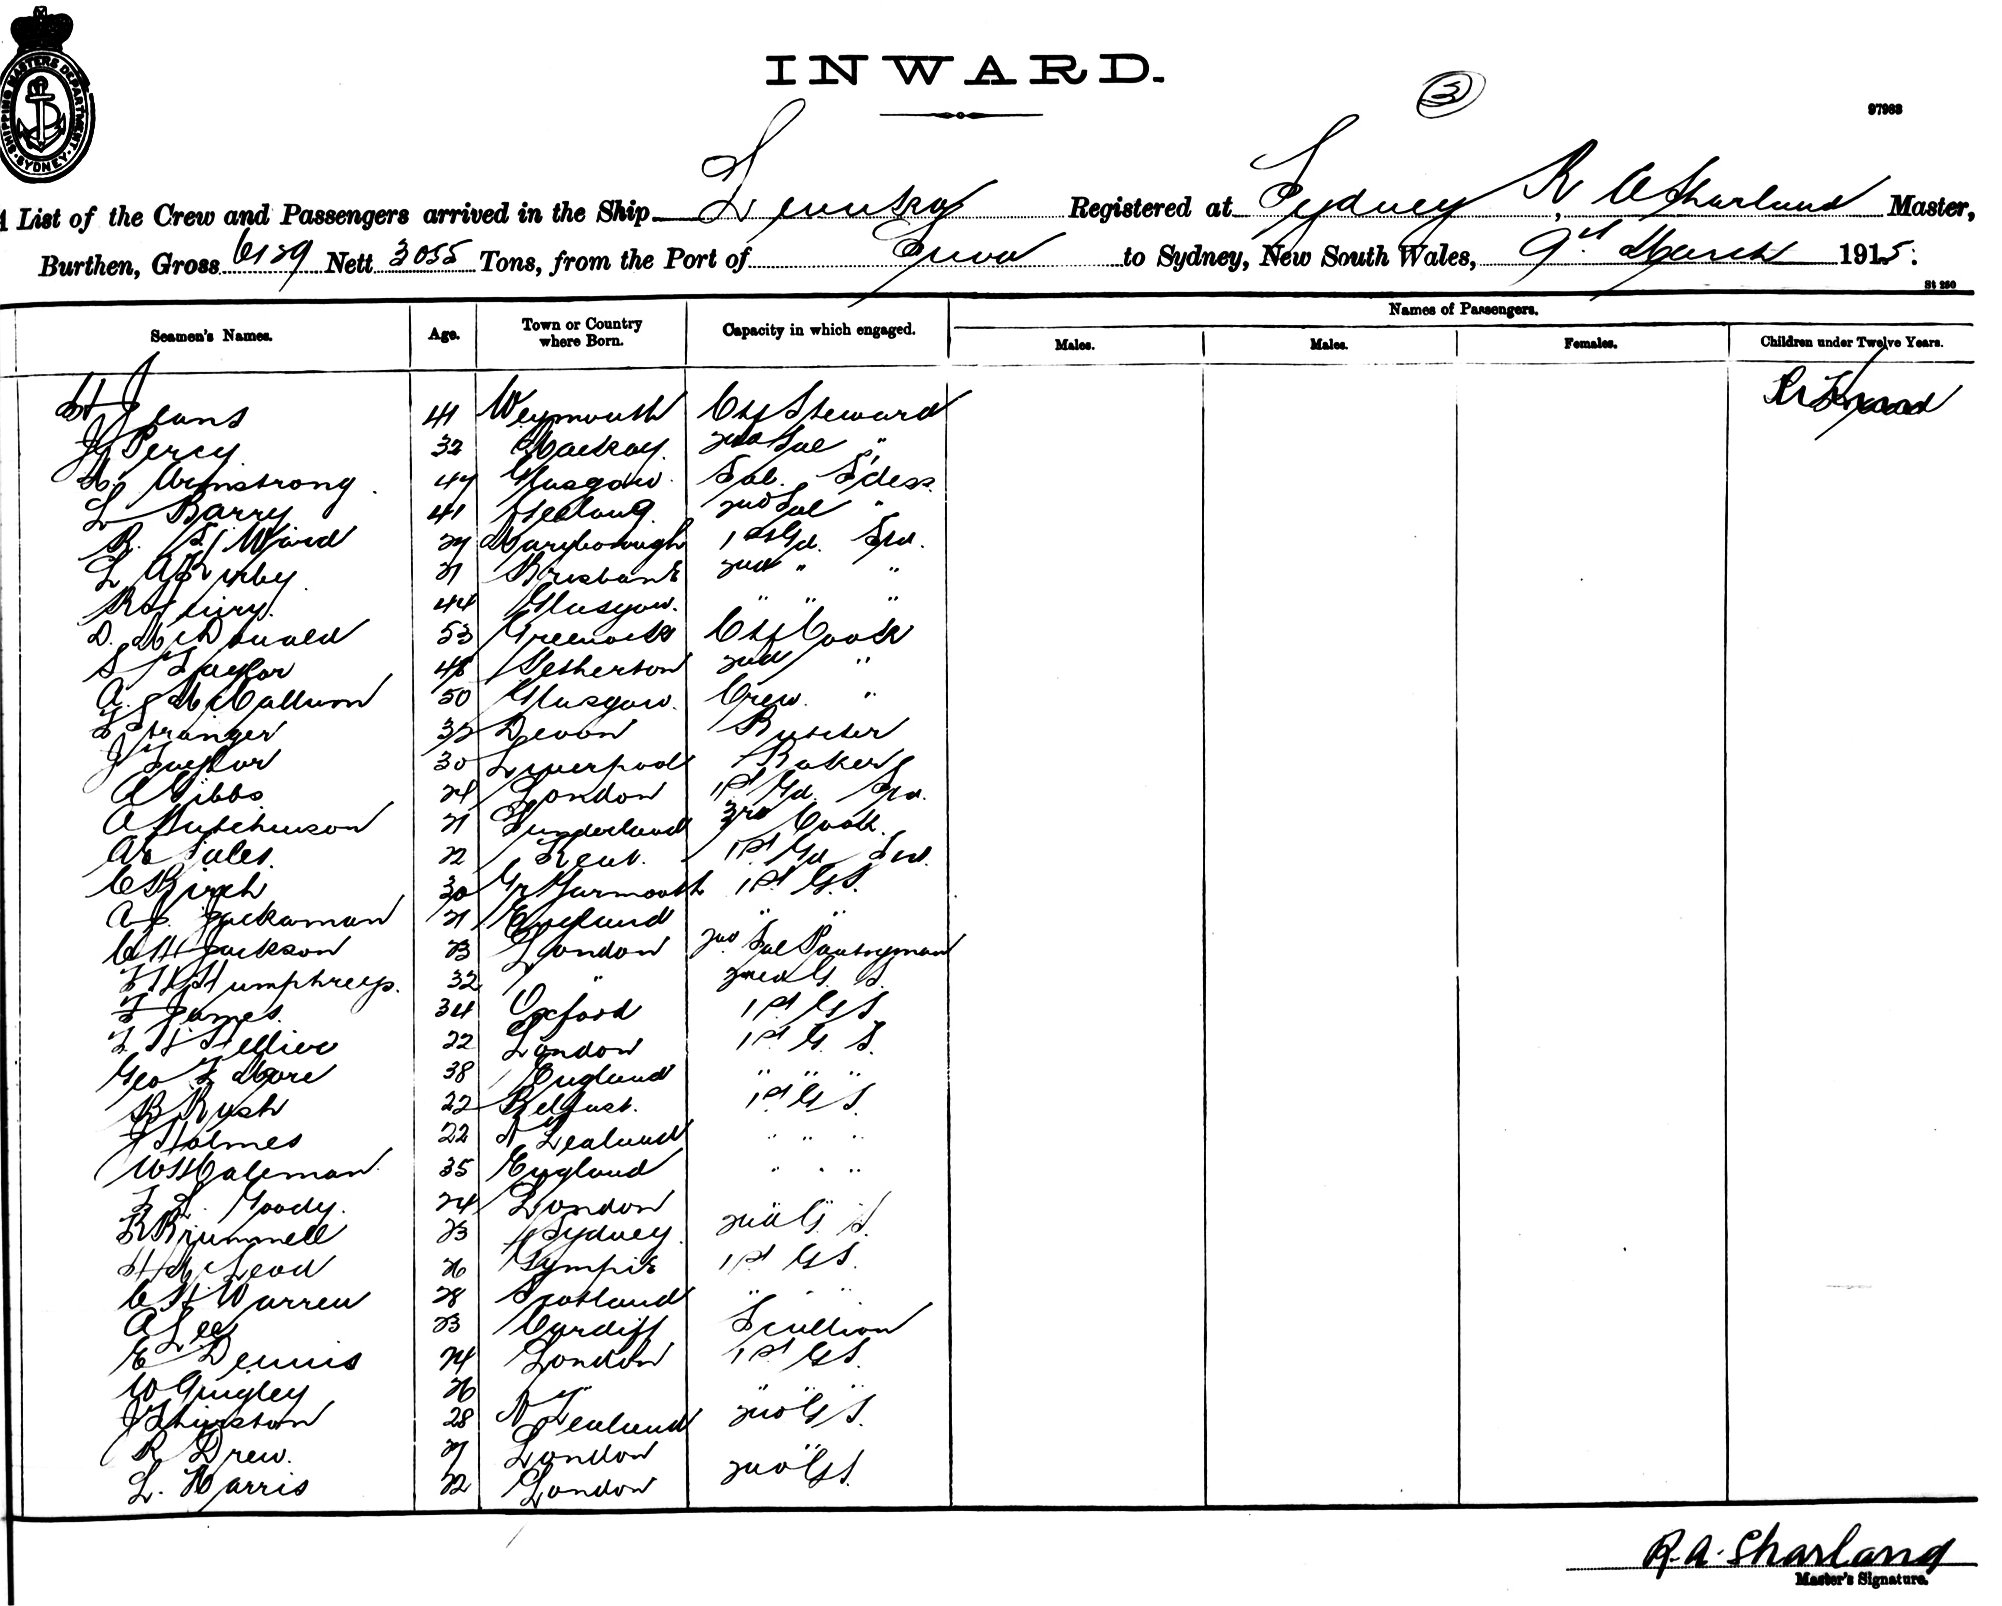 INWARD.
3
97983
SHIPPING MASTERS DEPARTMENT SYDNEY
A List of the Crew and Passengers arrived in the Ship Levuka Registered at Sydney R A Sharland Master,
Burthen, Gross 6129 Nett 3055 Tons, from the Port of Suva to Sydney, New South Wales, 9th March 1915.
St 250
Seamen's Names. Age. Town or Country where Born. Capacity in which engaged. Names of Passengers.
Males. Males. Females. Children under Twelve Years.
H Jeans 41 Weymouth Chf Steward
J Percy 32 Mackay. 2nd Sal "
M. Armstrong. 47 Glasgow. Sal. S'dess.
L Barry 41 Geelong. 2nd Sal "
R. H Ward 27 Maryborough 1st Gd. Stw.
L A Kirby 21 Brisbane 2nd " "
R Henry. 44 Glasgow. " " "
D. McDonald 53 Greenock Chf Cook
S Taylor 48 Netherton 2nd "
A. McCallum 50 Glasgow. Crew. "
Stranger 32 Devon Butcher
J Taylor 30 Liverpool Baker
A Gibbs 24 London 1st Gd. Stw.
A Hutchinson 21 Sunderland 3rd Cook.
Sales. 22 Kent. 1st Gd Stw.
C Birch 30 Gr Yarmouth 1st G.S.
Jackaman 21 England " "
C H Jackson 23 London 2nd Sal Pantryman
Humphreys. 32 " 2nd G. S.
F James. 34 Oxford 1st G S
22 London 1st G. S.
Geo F More 38 England " " "
B Rush 22 Belfast. 1st G S.
J Holmes 22 N Zealand " " "
W H Caleman 35 England " " "
F L. Goody. 24 London
R Brummell 23 Sydney. 2nd G. S.
H McLeod 26 Gympie 1st G S.
C H Warren 28 Scotland " " "
A Lee 23 Cardiff Scullion
E Dennis 24 London 1st G S.
W Quigley 26 " " " "
J Thurston 28 N Zealand 2nd G S.
R Drew. 27 London "
L. Harris 22 London 2nd G S.
R. A. Sharland
Master's Signature.